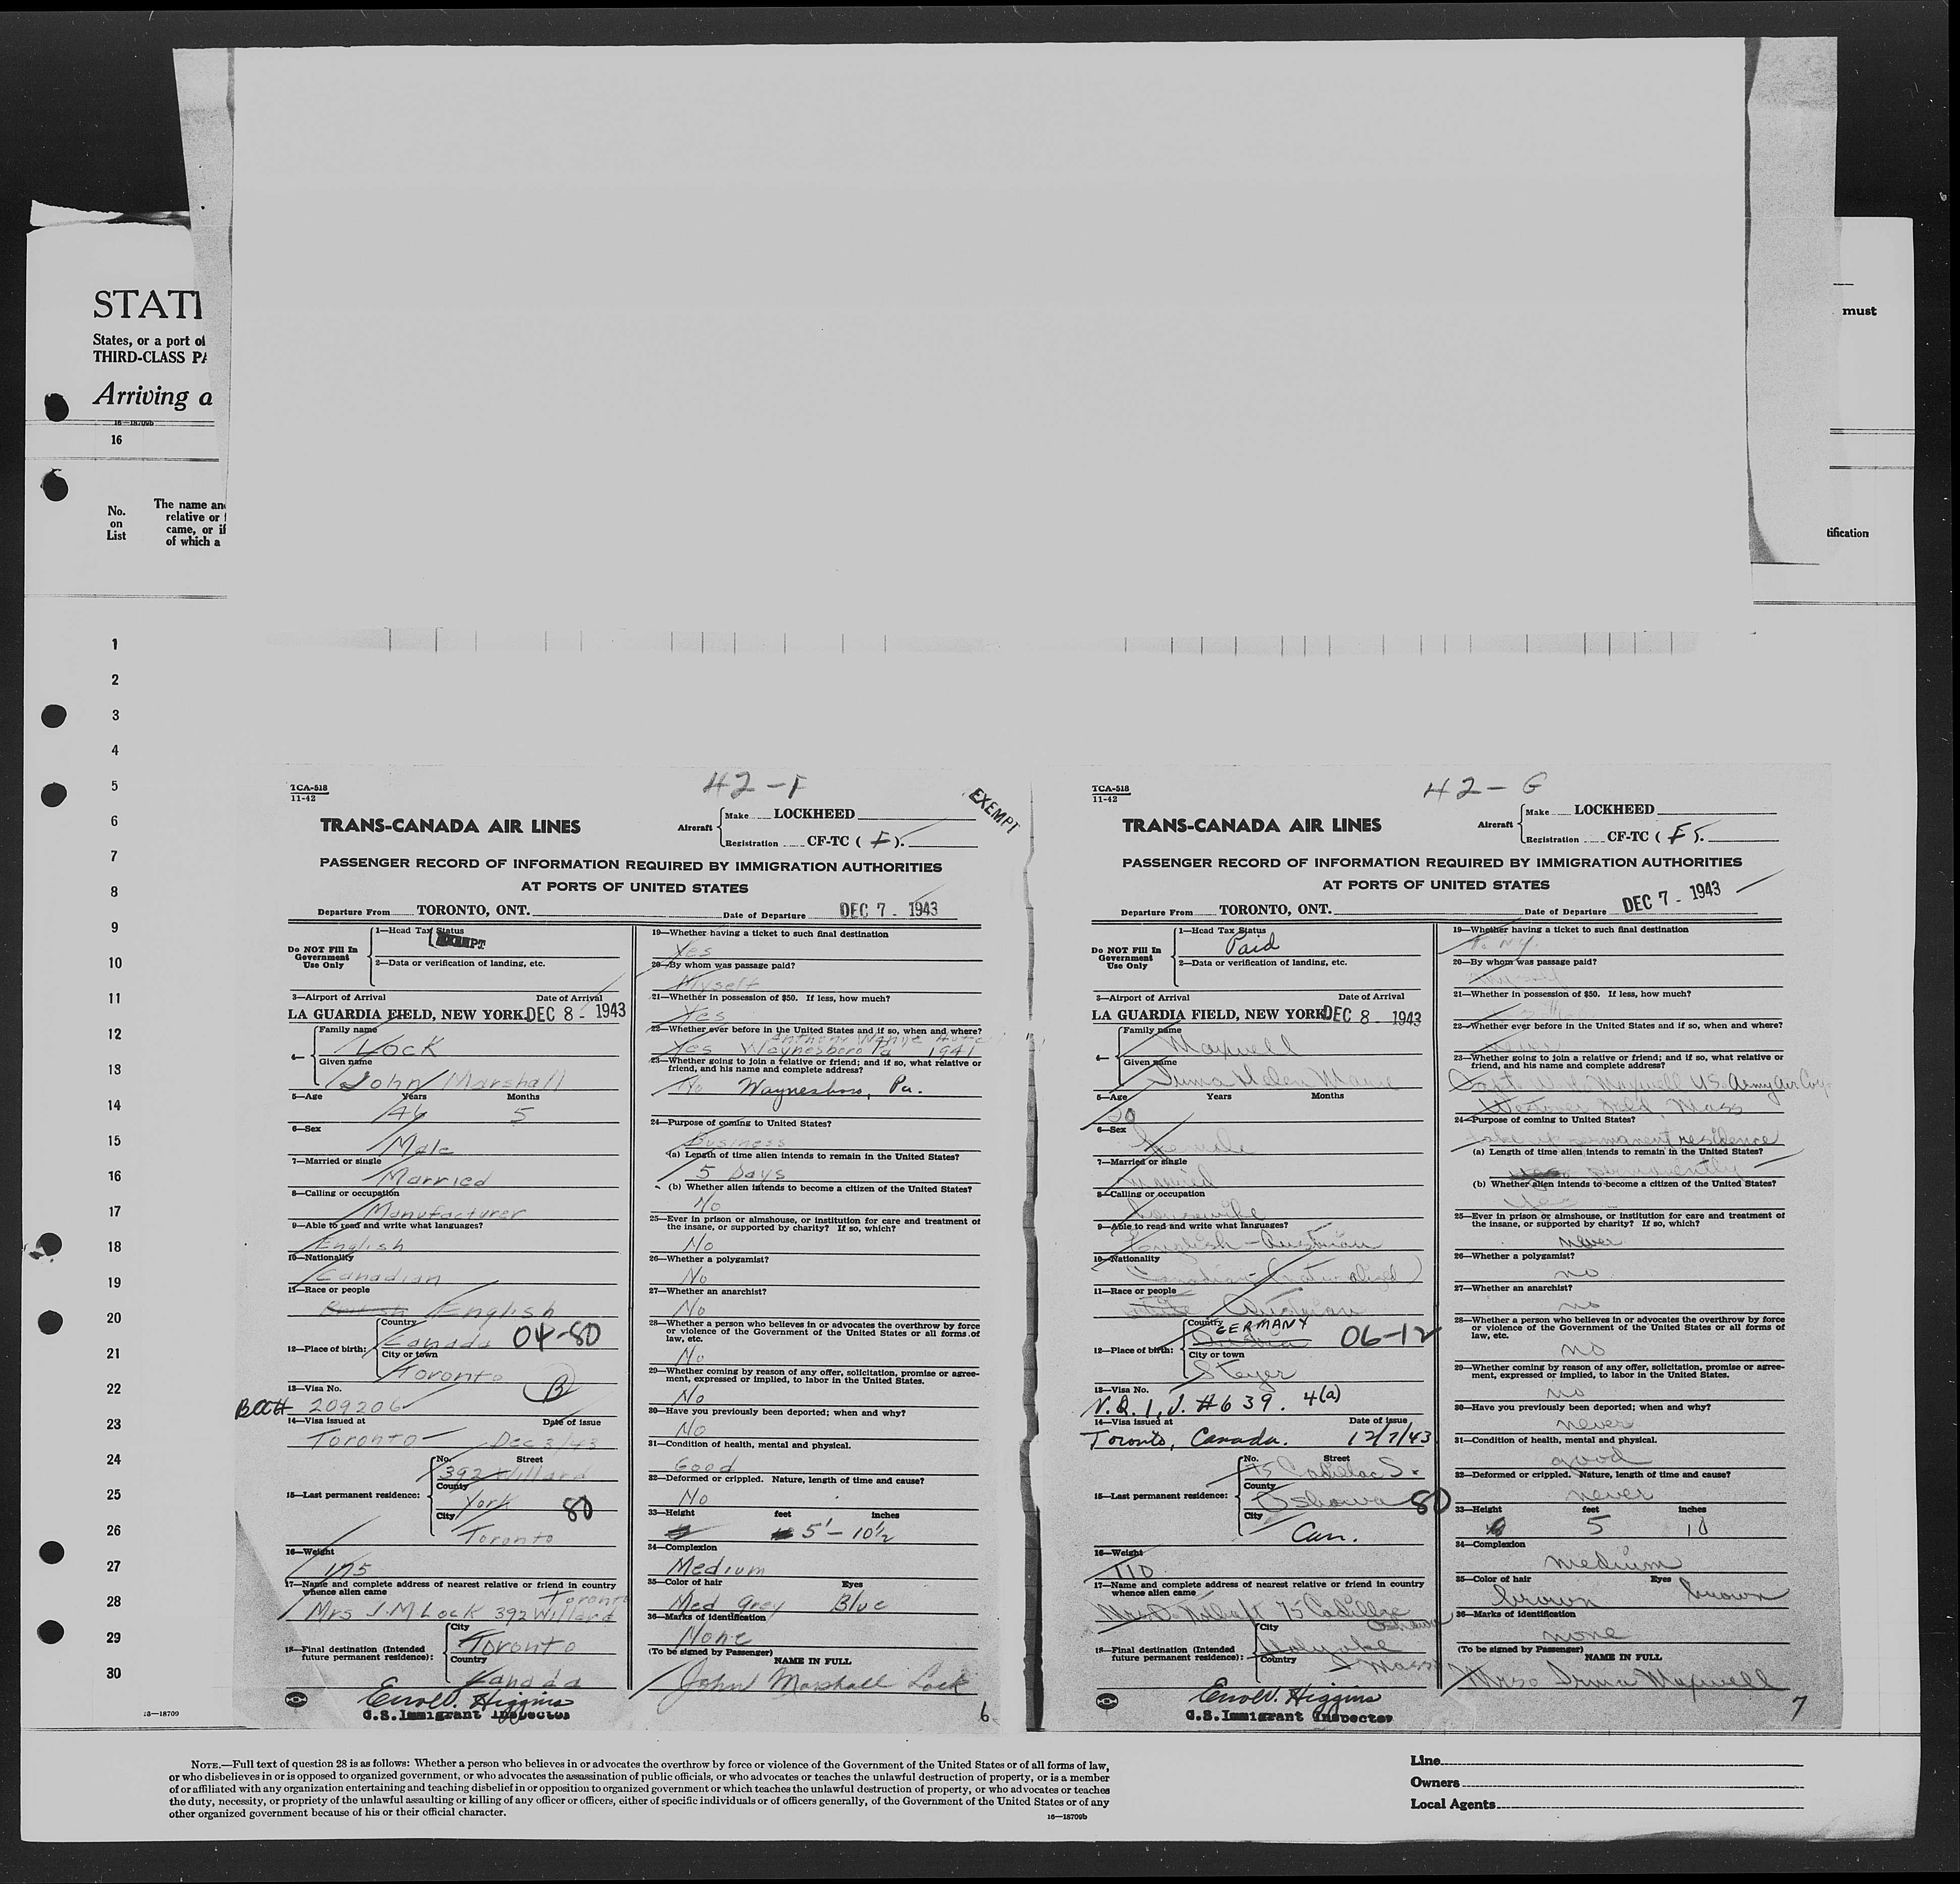 STAT
States, or a port of
THIRD-CLASS PA
Arriving a
16—18709b
16
No.
on
List
The name an
relative or
came, or if
of which a
must
tification
1
2
3
4
5
6
7
8
9
10
11
12
13
14
15
16
17
18
19
20
21
22
23
24
25
26
27
28
29
30
16—18709
TCA-518
11-42
42-F
EXEMPT
TRANS-CANADA AIR LINES
Aircraft
Make LOCKHEED
Registration CF-TC ( F ).
PASSENGER RECORD OF INFORMATION REQUIRED BY IMMIGRATION AUTHORITIES
AT PORTS OF UNITED STATES
Departure From TORONTO, ONT. Date of Departure DEC 7 - 1943
Do NOT Fill In
Government
Use Only
1—Head Tax Status
EXEMPT
2—Data or verification of landing, etc.
3—Airport of Arrival Date of Arrival
LA GUARDIA FIELD, NEW YORK. DEC 8 - 1943
4—
Family name
Lock
Given name
John Marshall
5—Age Years Months
46 5
6—Sex
Male
7—Married or single
Married
8—Calling or occupation
Manufacturer
9—Able to read and write what languages?
English
10—Nationality
Canadian
11—Race or people
British English
12—Place of birth:
Country
Canada 04-80
City or town
Toronto
13—Visa No. B
BCC# 209206
14—Visa issued at Date of issue
Toronto Dec 3/43
15—Last permanent residence:
No. Street
392 Willard
County
York 80
City
Toronto
16—Weight
175
17—Name and complete address of nearest relative or friend in country
whence alien came
Toronto
Mrs J.M Lock 392 Willard
18—Final destination (Intended
future permanent residence):
City
Toronto
Country
Kanada
Errol V. Higgins
U.S. Immigrant Inspector
19—Whether having a ticket to such final destination
Yes
20—By whom was passage paid?
Myself
21—Whether in possession of $50. If less, how much?
Yes
22—Whether ever before in the United States and if so, when and where?
Anthony Wayne Hotel
Yes Waynesboro Pa 1941
23—Whether going to join a relative or friend; and if so, what relative or
friend, and his name and complete address?
No Waynesboro, Pa.
24—Purpose of coming to United States?
Business
(a) Length of time alien intends to remain in the United States?
5 Days
(b) Whether alien intends to become a citizen of the United States?
No
25—Ever in prison or almshouse, or institution for care and treatment of
the insane, or supported by charity? If so, which?
No
26—Whether a polygamist?
No
27—Whether an anarchist?
No
28—Whether a person who believes in or advocates the overthrow by force
or violence of the Government of the United States or all forms of
law, etc.
No
29—Whether coming by reason of any offer, solicitation, promise or agree-
ment, expressed or implied, to labor in the United States.
No
30—Have you previously been deported; when and why?
No
31—Condition of health, mental and physical.
Good
32—Deformed or crippled. Nature, length of time and cause?
No
33—Height feet inches
5' - 10½
34—Complexion
Medium
35—Color of hair Eyes
Med Grey Blue
36—Marks of identification
None
(To be signed by Passenger)
NAME IN FULL
John Marshall Lock
6
TCA-518
11-42
42-G
TRANS-CANADA AIR LINES
Aircraft
Make LOCKHEED
Registration CF-TC ( F ).
PASSENGER RECORD OF INFORMATION REQUIRED BY IMMIGRATION AUTHORITIES
AT PORTS OF UNITED STATES
Departure From TORONTO, ONT. Date of Departure DEC 7 - 1943
Do NOT Fill In
Government
Use Only
1—Head Tax Status
Paid
2—Data or verification of landing, etc.
3—Airport of Arrival Date of Arrival
LA GUARDIA FIELD, NEW YORK DEC 8 - 1943
4—
Family name
Maxwell
Given name
Irma Helen
5—Age Years Months
20
6—Sex
Female
7—Married or single
married
8—Calling or occupation
housewife
9—Able to read and write what languages?
English - Austrian
10—Nationality
Canadian (naturalized)
11—Race or people
white Austrian
12—Place of birth:
Country
GERMANY 06-12
Austria
City or town
Steyer
13—Visa No.
N.Q.I.V. #639. 4(a)
14—Visa issued at Date of issue
Toronto, Canada. 12/7/43
15—Last permanent residence:
No. Street
75 Cadillac S.
County
Oshawa 80
City
Can.
16—Weight
110
17—Name and complete address of nearest relative or friend in country
whence alien came
75 Cadillac
Oshawa
18—Final destination (Intended
future permanent residence):
City
Holyoke
Country
Mass
Errol V. Higgins
U.S. Immigrant Inspector
19—Whether having a ticket to such final destination
To N.Y.
20—By whom was passage paid?
myself
21—Whether in possession of $50. If less, how much?
22—Whether ever before in the United States and if so, when and where?
23—Whether going to join a relative or friend; and if so, what relative or
friend, and his name and complete address?
Capt. Maxwell U.S. Army Air Corp
Westover Field, Mass
24—Purpose of coming to United States?
take up permanent residence
(a) Length of time alien intends to remain in the United States?
permanently
(b) Whether alien intends to become a citizen of the United States?
Yes
25—Ever in prison or almshouse, or institution for care and treatment of
the insane, or supported by charity? If so, which?
never
26—Whether a polygamist?
no
27—Whether an anarchist?
no
28—Whether a person who believes in or advocates the overthrow by force
or violence of the Government of the United States or all forms of
law, etc.
no
29—Whether coming by reason of any offer, solicitation, promise or agree-
ment, expressed or implied, to labor in the United States.
no
30—Have you previously been deported; when and why?
never
31—Condition of health, mental and physical.
good
32—Deformed or crippled. Nature, length of time and cause?
never
33—Height feet inches
5 10
34—Complexion
medium
35—Color of hair Eyes
brown brown
36—Marks of identification
none
(To be signed by Passenger)
NAME IN FULL
Mrs. Irma Maxwell
7
NOTE.—Full text of question 28 is as follows: Whether a person who believes in or advocates the overthrow by force or violence of the Government of the United States or of all forms of law,
or who disbelieves in or is opposed to organized government, or who advocates the assassination of public officials, or who advocates or teaches the unlawful destruction of property, or is a member
of or affiliated with any organization entertaining and teaching disbelief in or opposition to organized government or which teaches the unlawful destruction of property, or who advocates or teaches
the duty, necessity, or propriety of the unlawful assaulting or killing of any officer or officers, either of specific individuals or of officers generally, of the Government of the United States or of any
other organized government because of his or their official character.
16—18709b
Line
Owners
Local Agents